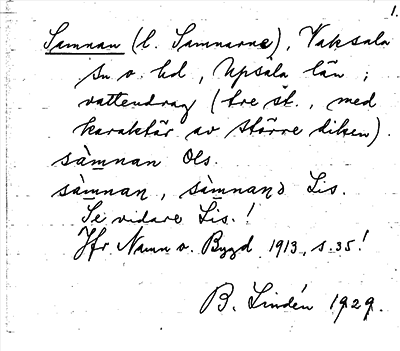 1.
Samnan (l. Samnarne), Vaksala
sn o. hd, Upsala län;
vattendrag (tre st., med
karaktär av större diken).
sàmnan Ols.
sàmnan, sàmnanə Lis.
Se vidare Lis.!
Jfr Namn o. Bygd 1913, s. 35!
B. Lindén 1929.